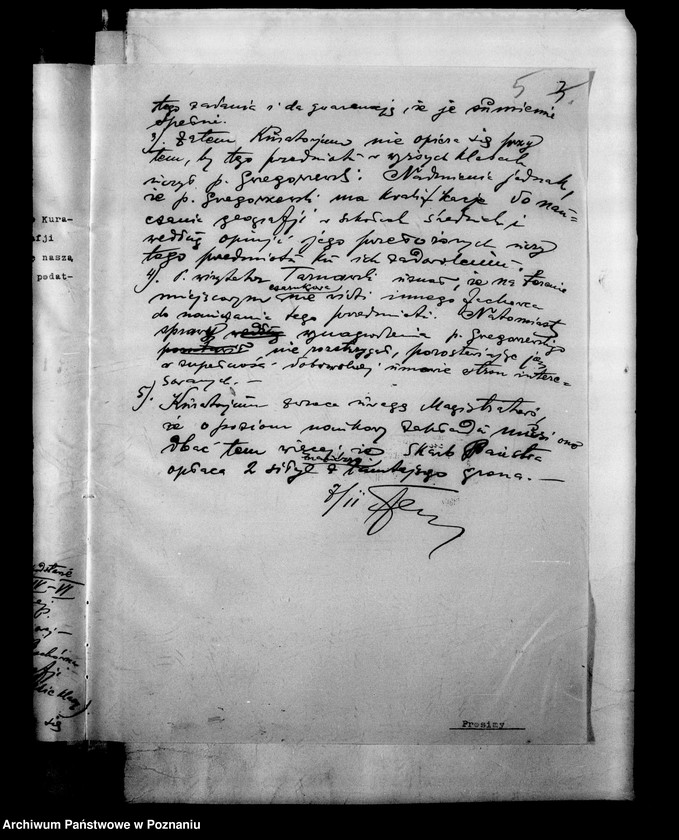 5 3.
tego zadania i da gwarancję, że je sumiennie
spełni.
3/. Zatem Kuratorjum nie opiera się przy
tem, by tego przedmiotu w wyższych klasach
uczył p. Gregorzewski. Nadmienia jednak,
że p. Gregorzewski ma kwalifikacje do nau=
czania geografji w szkołach średnich i
według opinji jego przełożonych uczy
tego przedmiotu ku ich zadowoleniu.
4/. P. wizytator Tarnawski uznał, że na terenie
miejscowym nie widzi innego fachowca
do nauczania tego przedmiotu. Natomiast
sprawy wynagrodzenia p. Gregorzewskiego
nie rozstrzygał, pozostawiając ją
w zupełności dobrowolnej umowie stron intere=
sowanych. —
5/. Kuratorjum zwraca uwagę Magistratowi,
że o poziom naukowy zakładu musi ono
dbać tem więcej, że Skarb Państwa
opłaca 2 siły z tamtejszego grona. —
7/II
o Kura-
afji
nasza
podat-
IV-VI
się
Prosimy
Archiwum Państwowe w Poznaniu